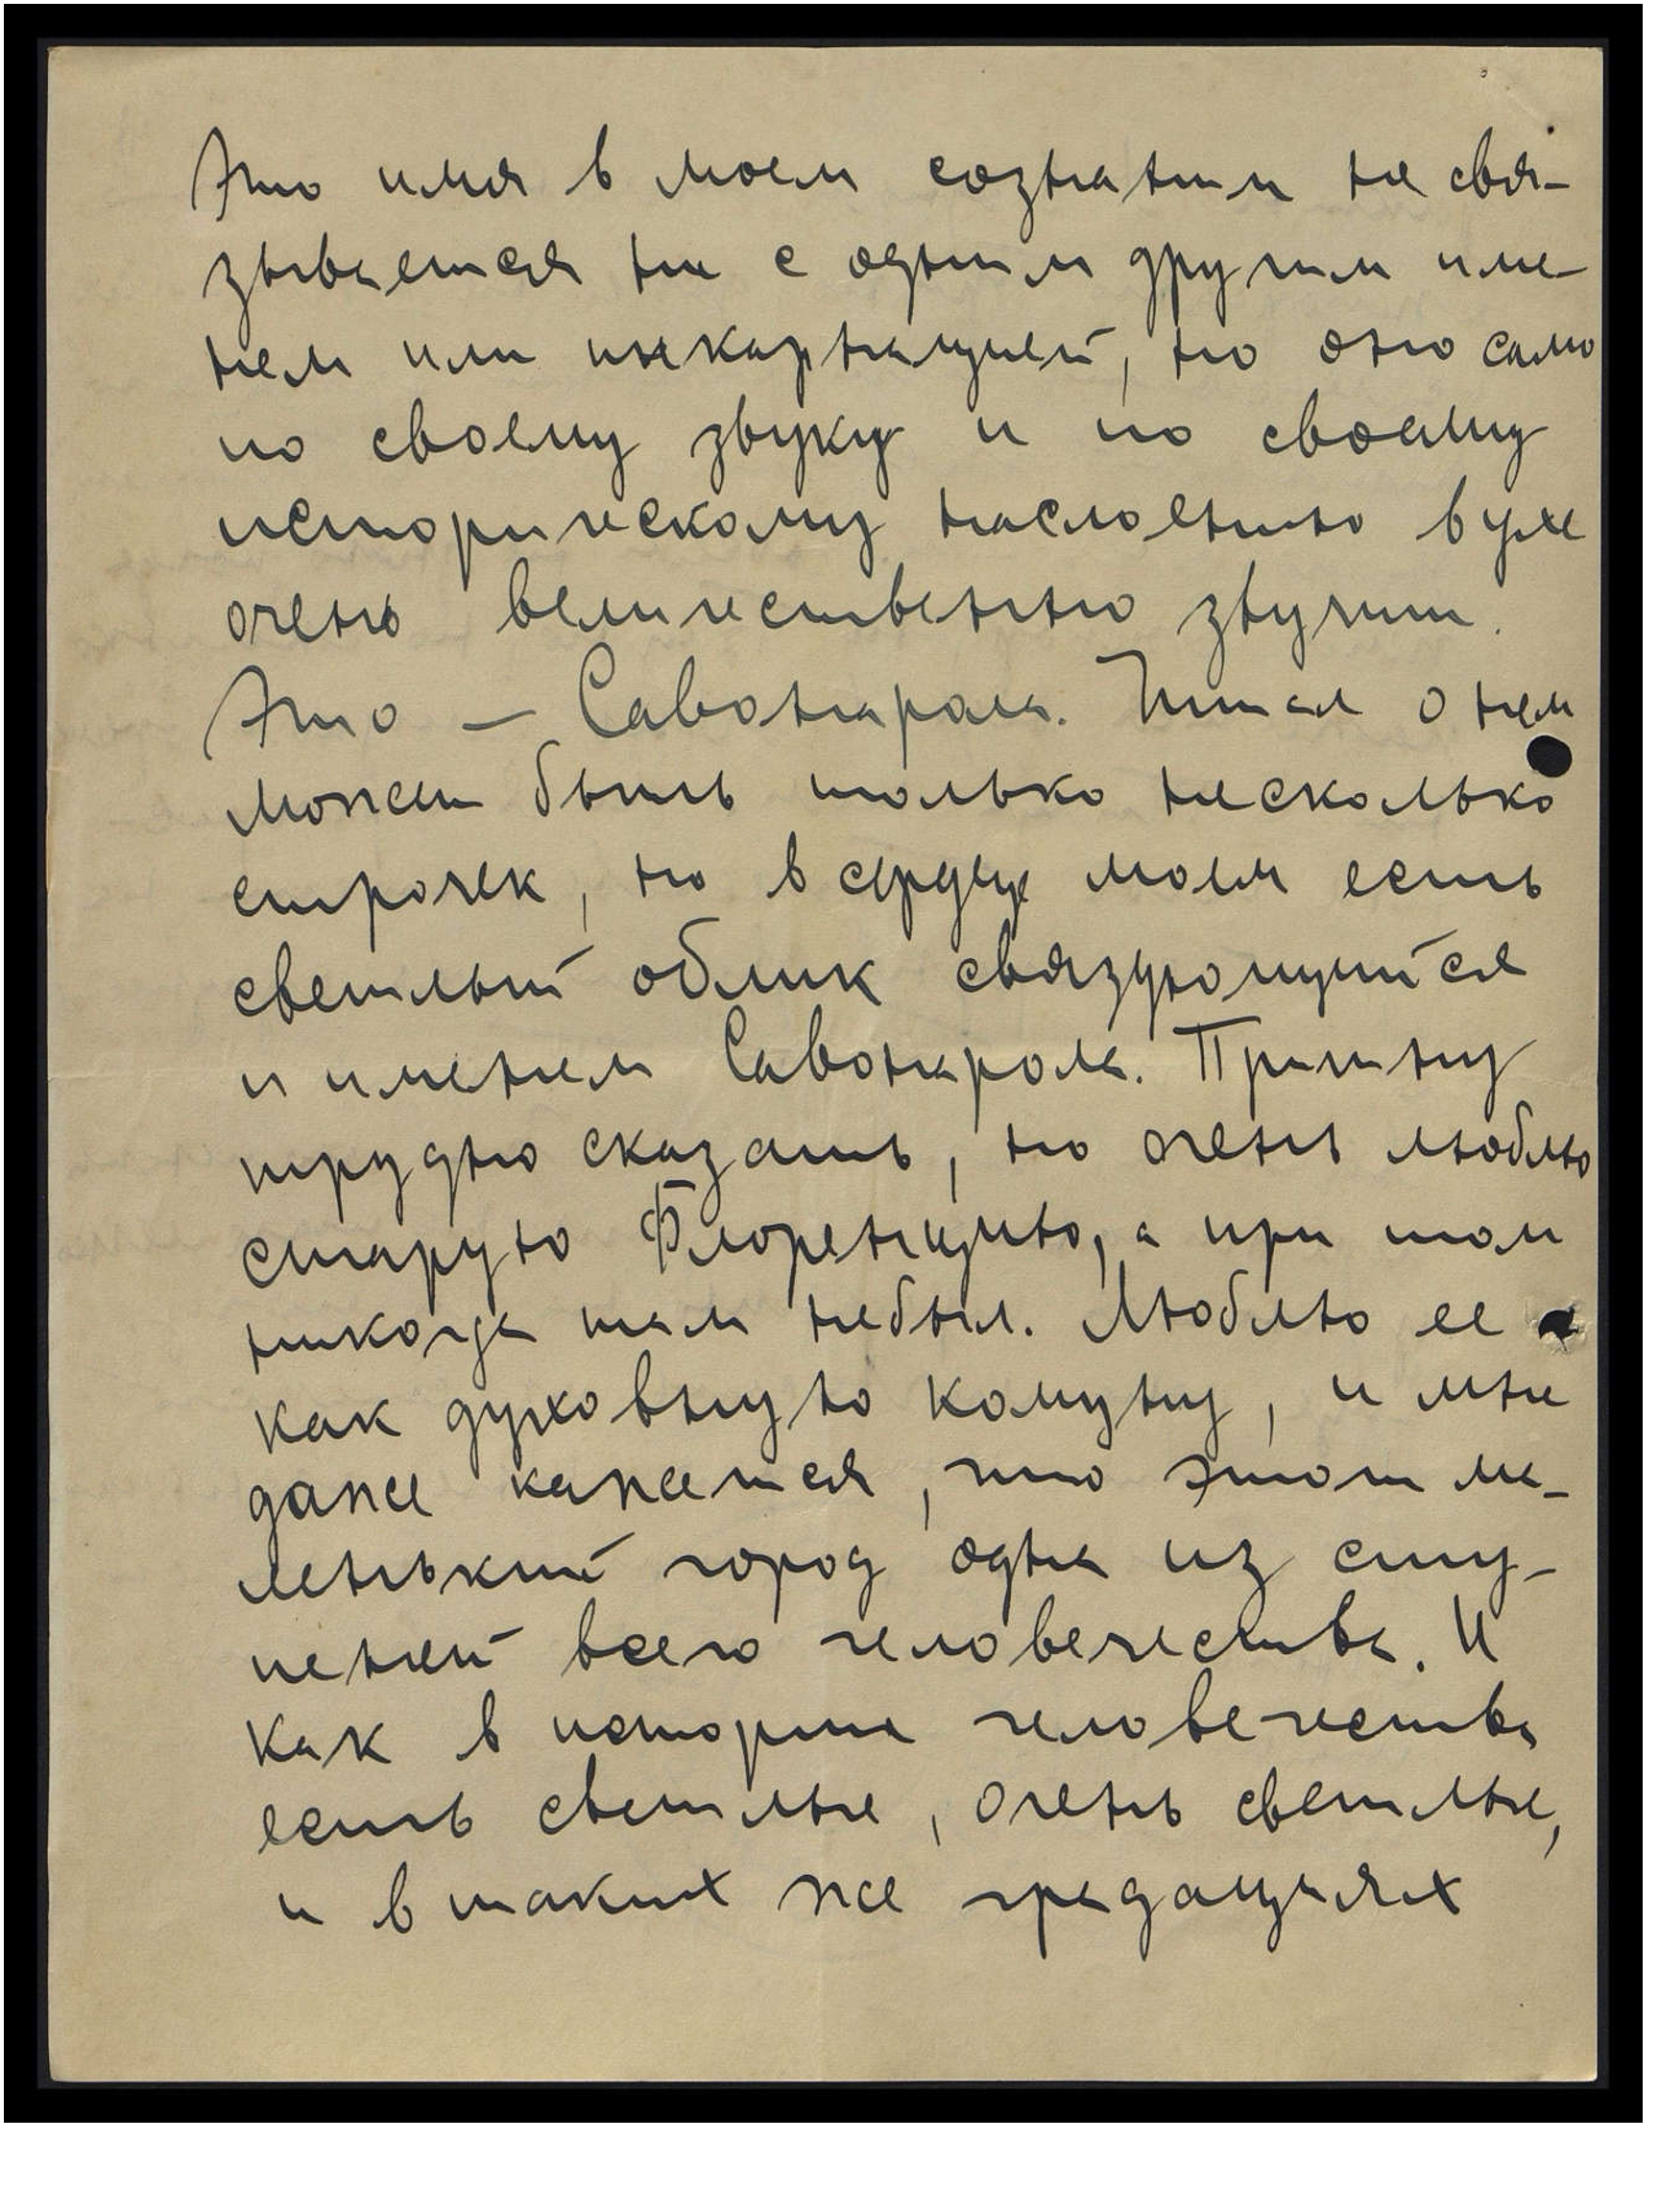 Это имя в моем сознании не свя-
зывается ни с одним другим име-
нем или инкарнацией, но оно само
по своему звуку и по своему
историческому наслоению в ухе
очень величественно звучит.
Это — Савонарола. Читал о нем
может быть только несколько
строчек, но в сердце моем есть
светлый облик связующийся
и именем Савонарола. Причину
трудно сказать, но очень люблю
старую Флоренцию, а при том
никогда там небыл. Люблю ее
как духовную комуну, и мне
даже кажется, что этот ма-
ленький город одна из сту-
пеней всего человечества. И
как в истории человечества
есть светлые, очень светлые,
и в таких же градациях